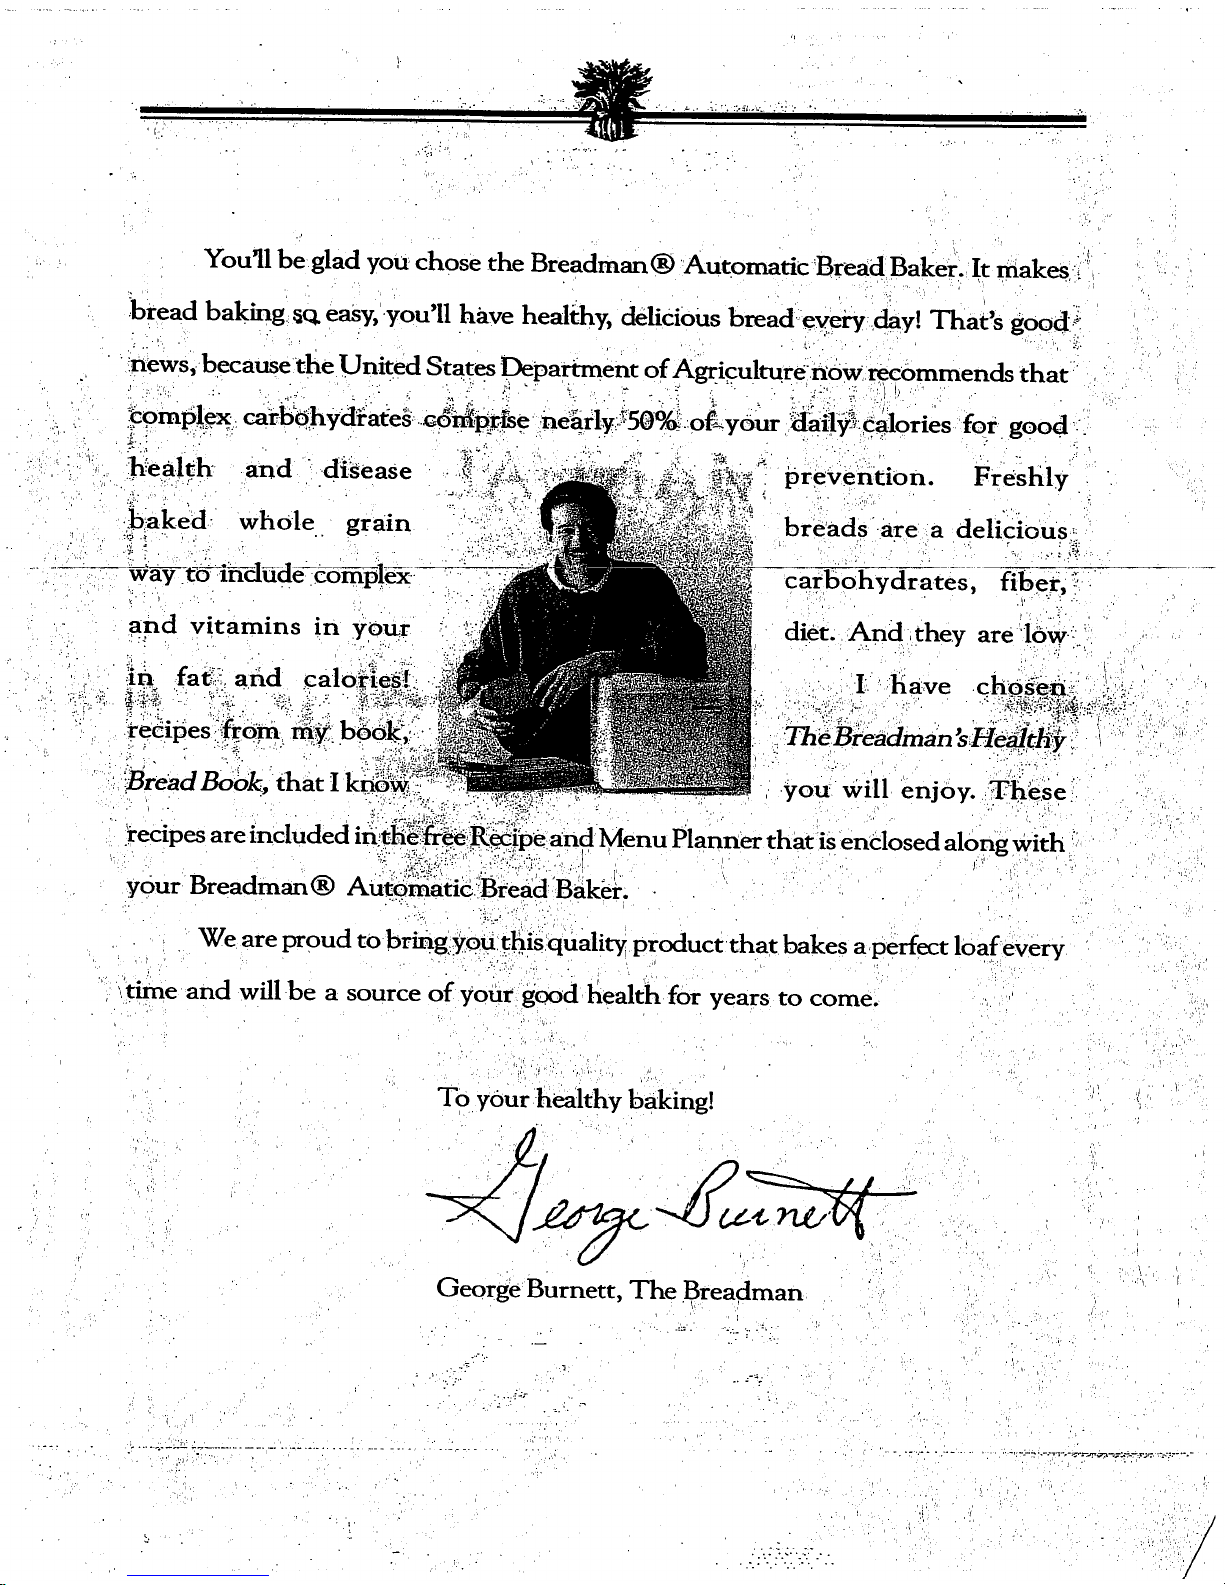 You'll be glad you chose the Breadman® Automatic Bread Baker. It makes
bread baking so easy, you'll have healthy, delicious bread every day! That's good
news, because the United States Department of Agriculture now recommends that
complex carbohydrates comprise nearly 50% of your daily calories for good
health and disease prevention. Freshly
baked whole grain breads are a delicious
way to include complex carbohydrates, fiber,
and vitamins in your diet. And they are low
in fat and calories! I have chosen
recipes from my book, The Breadman's Healthy
Bread Book, that I know you will enjoy. These
recipes are included in the free Recipe and Menu Planner that is enclosed along with
your Breadman® Automatic Bread Baker.
We are proud to bring you this quality product that bakes a perfect loaf every
time and will be a source of your good health for years to come.
To your healthy baking!
George Burnett
George Burnett, The Breadman